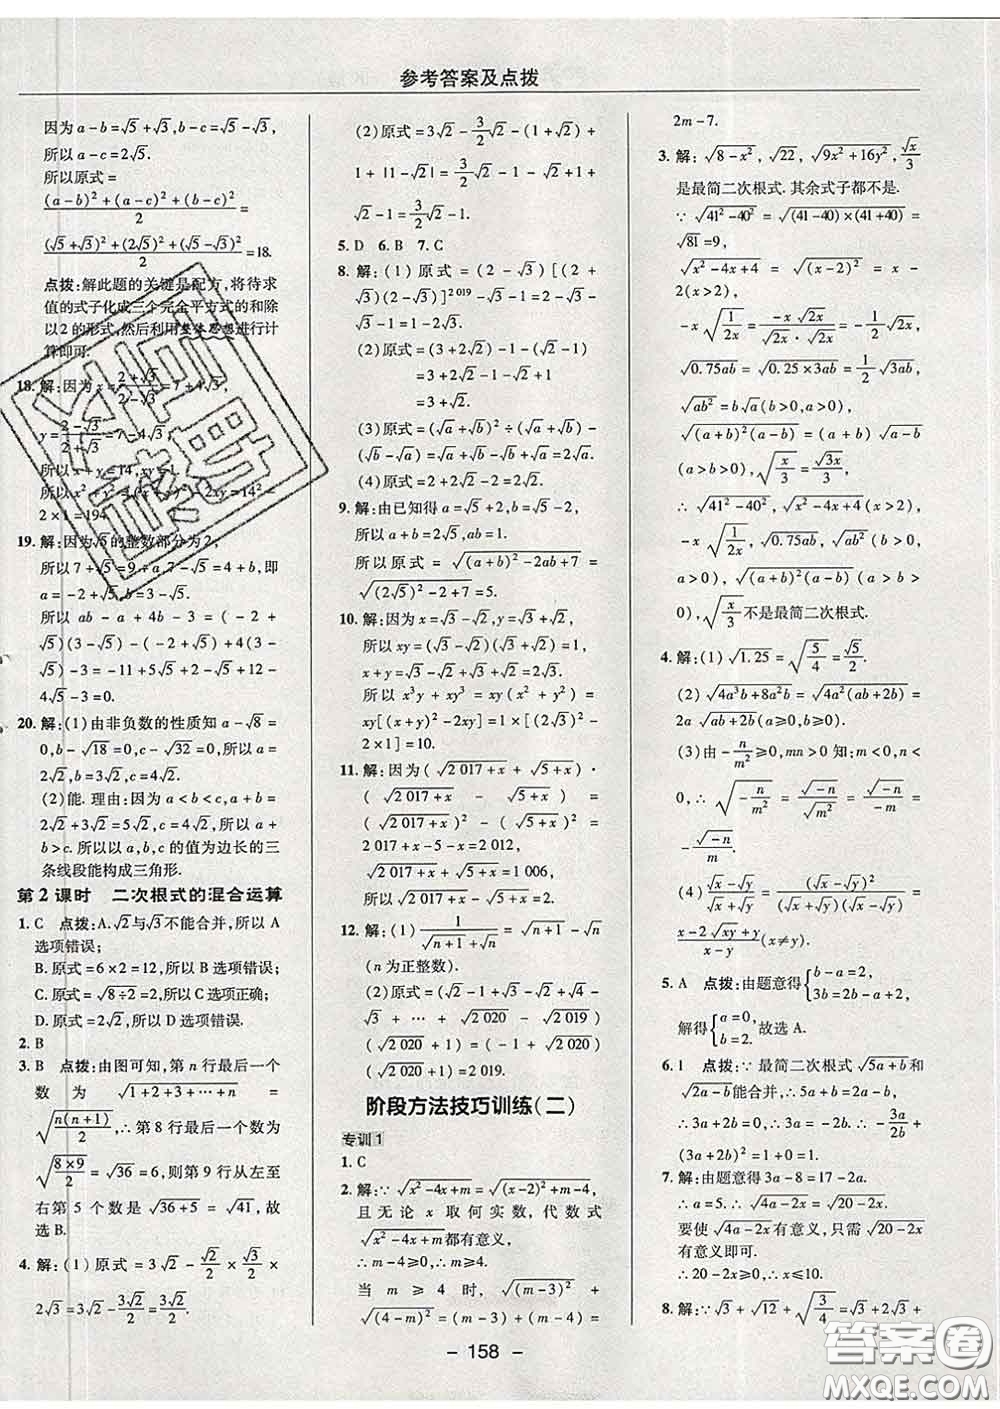 参考答案及点拨
因为 a-b=√5+√3,b-c=√5-√3,
所以 a-c=2√5.
所以原式=
((a-b)²+(a-c)²+(b-c)²)/2=
((√5+√3)²+(2√5)²+(√5-√3)²)/2=18.
点拨:解此题的关键是配方,将待求
值的式子化成三个完全平方式的和除
以2的形式,然后利用整体思想进行计
算即可.
18. 解:因为 x=(2+√3)/(2-√3)=7+4√3,
y=(2-√3)/(2+√3)=7-4√3,
所以 x+y=14,xy=1.
所以 x²+y²=(x+y)²-2xy=14²-
2×1=194.
19. 解:因为√5的整数部分为2,
所以 7+√5=9+a,7-√5=4+b,即
a=-2+√5,b=3-√5.
所以 ab-a+4b-3=(-2+
√5)(3-√5)-(-2+√5)+4(3-
√5)-3=-11+5√5+2-√5+12-
4√5-3=0.
20. 解:(1)由非负数的性质知 a-√8=
0,b-√18=0,c-√32=0,所以 a=
2√2,b=3√2,c=4√2.
(2)能. 理由:因为 a<b<c,a+b=
2√2+3√2=5√2,c=4√2,所以 a+
b>c. 所以以 a,b,c 的值为边长的三
条线段能构成三角形.
第2课时 二次根式的混合运算
1. C 点拨:A.√2与√3不能合并,所以 A
选项错误;
B. 原式=6×2=12,所以 B 选项错误;
C. 原式=√(8÷2)=2,所以 C 选项正确;
D. 原式=2√2,所以 D 选项错误.
2. B
3. B 点拨:由图可知,第 n 行最后一个
数为√(1+2+3+…+n)=
√(n(n+1)/2),∴第 8 行最后一个数为
√(8×9/2)=√36=6,则第 9 行从左至
右第 5 个数是√(36+5)=√41,故
选 B.
4. 解:(1)原式=3√2-√2/2×√3/2×
2√3=3√2-3√2/2=3√2/2.
(2)原式=3√2-3/2√2-(1-√2)+
1+|1-√2|=3/2√2-1+√2+1+
√2-1=3/2√2-1.
5. D 6. B 7. C
8. 解:(1)原式=(2-√3)[(2+
√3)(2-√3)]²⁰¹⁹-√3-1=2-
√3-√3-1=1-2√3.
(2)原式=(3+2√2)-(√2-1)-1
=3+2√2-√2+1-1
=3+√2.
(3)原式=(√a+√b)²÷(√a+√b)-
(√b-√a)=√a+√b-√b+√a=2√a.
(4)原式=2+2√2-2=2√2.
9. 解:由已知得 a=√5+2,b=√5-2,
所以 a+b=2√5,ab=1.
所以原式=√((a+b)²-2ab+7)=
√((2√5)²-2+7)=5.
10. 解:因为 x=√3-√2,y=√3+√2,
所以 xy=(√3-√2)(√3+√2)=1,
x+y=√3-√2+√3+√2=2√3.
所以 x³y+xy³=xy(x²+y²)=
xy[(x+y)²-2xy]=1×[(2√3)²-
2×1]=10.
11. 解:因为(√(2 017+x)+√(5+x))·
(√(2 017+x)-√(5+x))=
(√(2 017+x))²-(√(5+x))²=
2 017+x-5-x=2 012,
√(2 017+x)+√(5+x)=503,所以
√(2 017+x)-√(5+x)=4.
12. 解:(1)1/(√(n+1)+√n)=√(n+1)-√n
(n 为正整数).
(2)原式=(√2-1+√3-√2+√4-
√3+…+√2 020-√2 019)×
(√2 020+1)=(√2 020-1)×
(√2 020+1)=2 019.
阶段方法技巧训练(二)
专训1
1. C
2. 解:∵√(x²-4x+m)=√((x-2)²+m-4),
且无论 x 取何实数,代数式
√(x²-4x+m)都有意义,
∴m-4≥0,∴m≥4.
当 m≥4 时,√((m-3)²)+
√((4-m)²)=(m-3)+(m-4)=
2m-7.
3. 解:√(8-x²),√22,√(9x²+16y²),√x/3
是最简二次根式. 其余式子都不是.
∵√(41²-40²)=√((41-40)×(41+40))=
√81=9,
√(x²-4x+4)=√((x-2)²)=x-
2(x>2),
-x√(1/2x)=(-x√2x)/√((2x)²)=-1/2√2x,
√0.75ab=√(0.25×3ab)=1/2√3ab,
√ab²=b√a(b>0,a>0),
√((a+b)²(a-b))=(a+b)√(a-b)
(a>b>0),√(x/3)=√3x/3,
∴√(41²-40²),√(x²-4x+4)(x>2),
-x√(1/2x),√0.75ab,√ab²(b>0,a>
0),√((a+b)²(a-b))(a>b>
0),√(x/3)不是最简二次根式.
4. 解:(1)√1.25=√(5/4)=√5/2.
(2)√(4a³b+8a²b)=√(4a²(ab+2b))=
2a√(ab+2b)(a≥0,b≥0).
(3)由-n/m²≥0,mn>0 知:m<0,n<
0,∴√(-n/m²)=√(-n)/√m²=√(-n)/(-m)=
-√(-n)/m.
(4)(√x-√y)/(√x+√y)=(√x-√y)²/((√x+√y)(√x-√y))=
(x-2√xy+y)/(x-y)(x≠y).
5. A 点拨:由题意得{b-a=2,
3b=2b-a+2,
解得{a=0,
b=2.故选 A.
6. 1 点拨:∵最简二次根式√(5a+b)和
√(2a-b)能合并,∴5a+b=2a-b,
∴3a+2b=0,∴3a=-2b,∴3a/2b=-1,
∴(3a+2b)²+1=0+1=1.
7. 解:由题意得 3a-8=17-2a.
∴a=5.∴√(4a-2x)=√(20-2x).
要使√(4a-2x)有意义,只需√(20-2x)
有意义即可.
∴20-2x≥0,∴x≤10.
8. 解:∵√3+√12+√(3/4)=√3+2√3+
- 158 -
答案圈
MXQE.COM